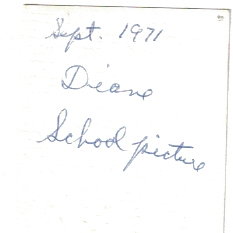 Sept. 1971
Diane
School picture